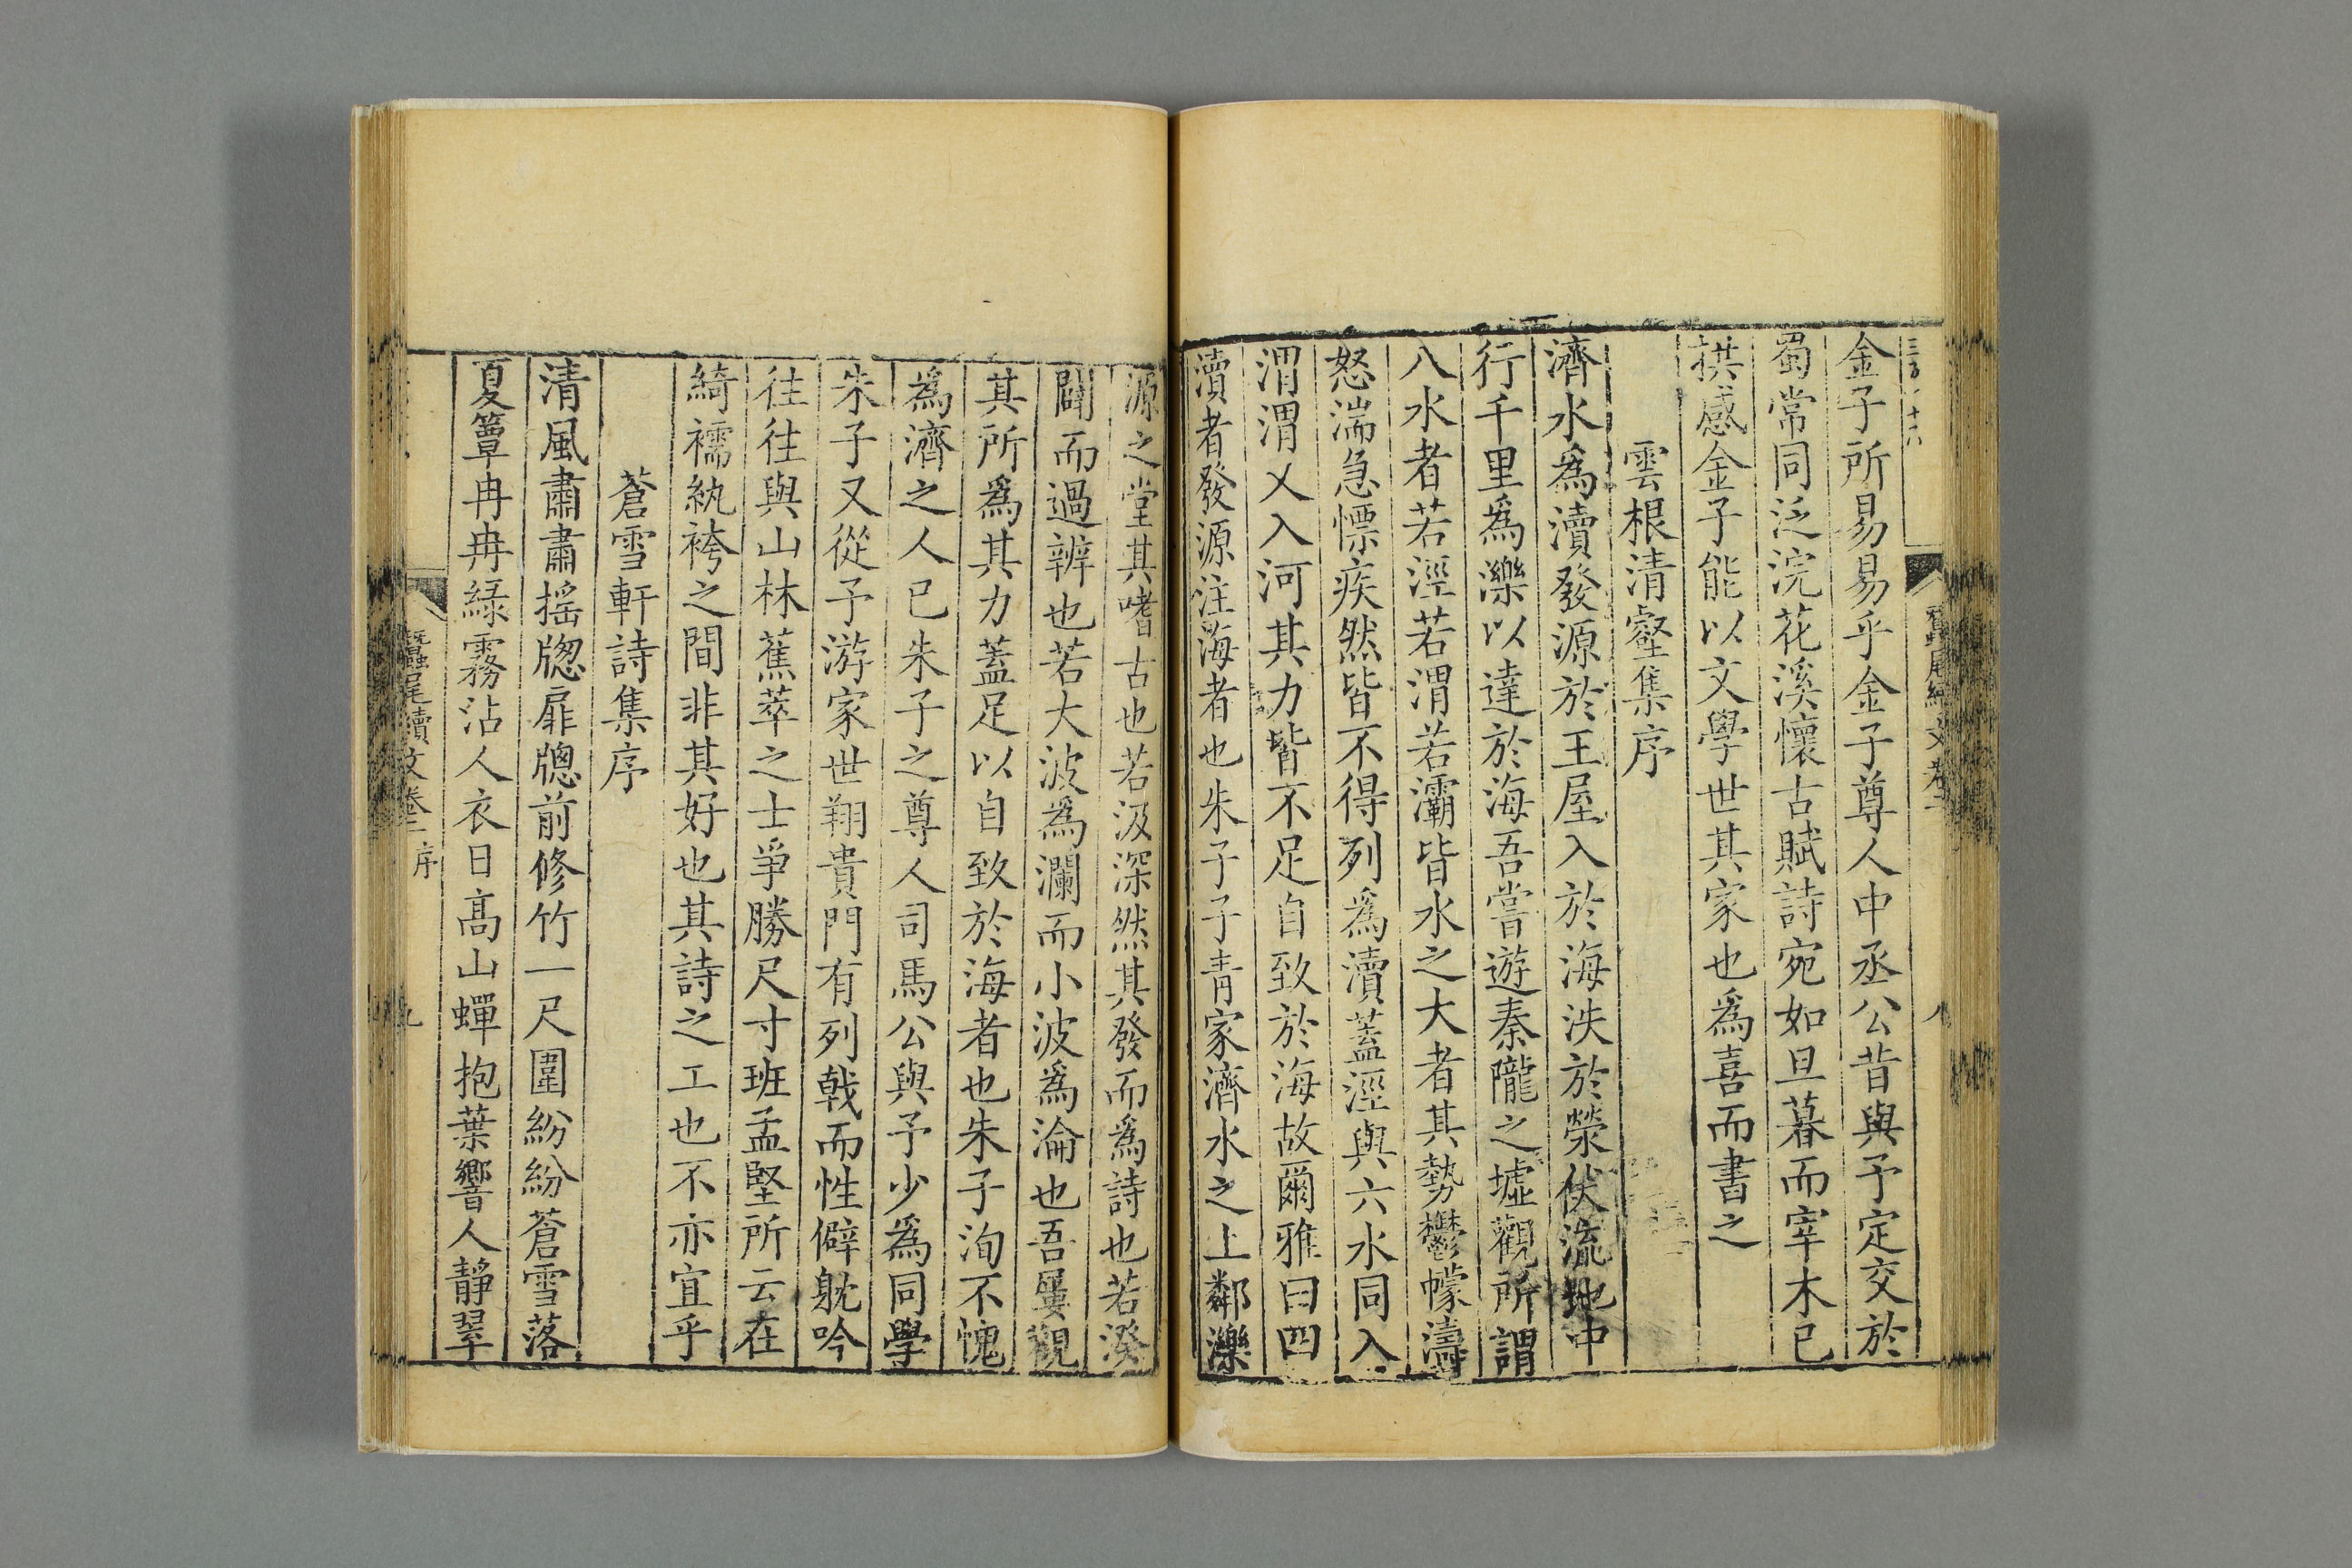 金子所易易乎金子尊人中丞公昔與予定交於
蜀常同泛浣花溪懷古賦詩宛如旦暮而宰木已
拱感金子能以文學世其家也爲喜而書之
雲根清壑集序
濟水爲瀆發源於王屋入於海泆於滎伏流地中
行千里爲濼以達於海吾嘗遊秦隴之墟觀所謂
八水者若涇若渭若灞皆水之大者其勢鬱幪濤
怒湍急慓疾然皆不得列爲瀆蓋涇與六水同入
渭渭乂入河其力皆不足自致於海故爾雅曰四
瀆者發源注海者也朱子子青家濟水之上鄰濼
源之堂其嗜古也若汲深然其發而爲詩也若溌
闢而過辨也若大波爲瀾而小波爲淪也吾屢觀
其所爲其力蓋足以自致於海者也朱子洵不愧
爲濟之人已朱子之尊人司馬公與予少爲同學
朱子又從予游家世翔貴門有列戟而性僻躭吟
往往與山林蕉萃之士爭勝尺寸班孟堅所云在
綺襦紈袴之間非其好也其詩之工也不亦宜乎
蒼雪軒詩集序
清風肅肅摇牎扉牎前修竹一尺圍紛紛蒼雪落
夏簟冉冉緑霧沾人衣日高山蟬抱葉響人靜翠
蠶尾續文卷二 序 九